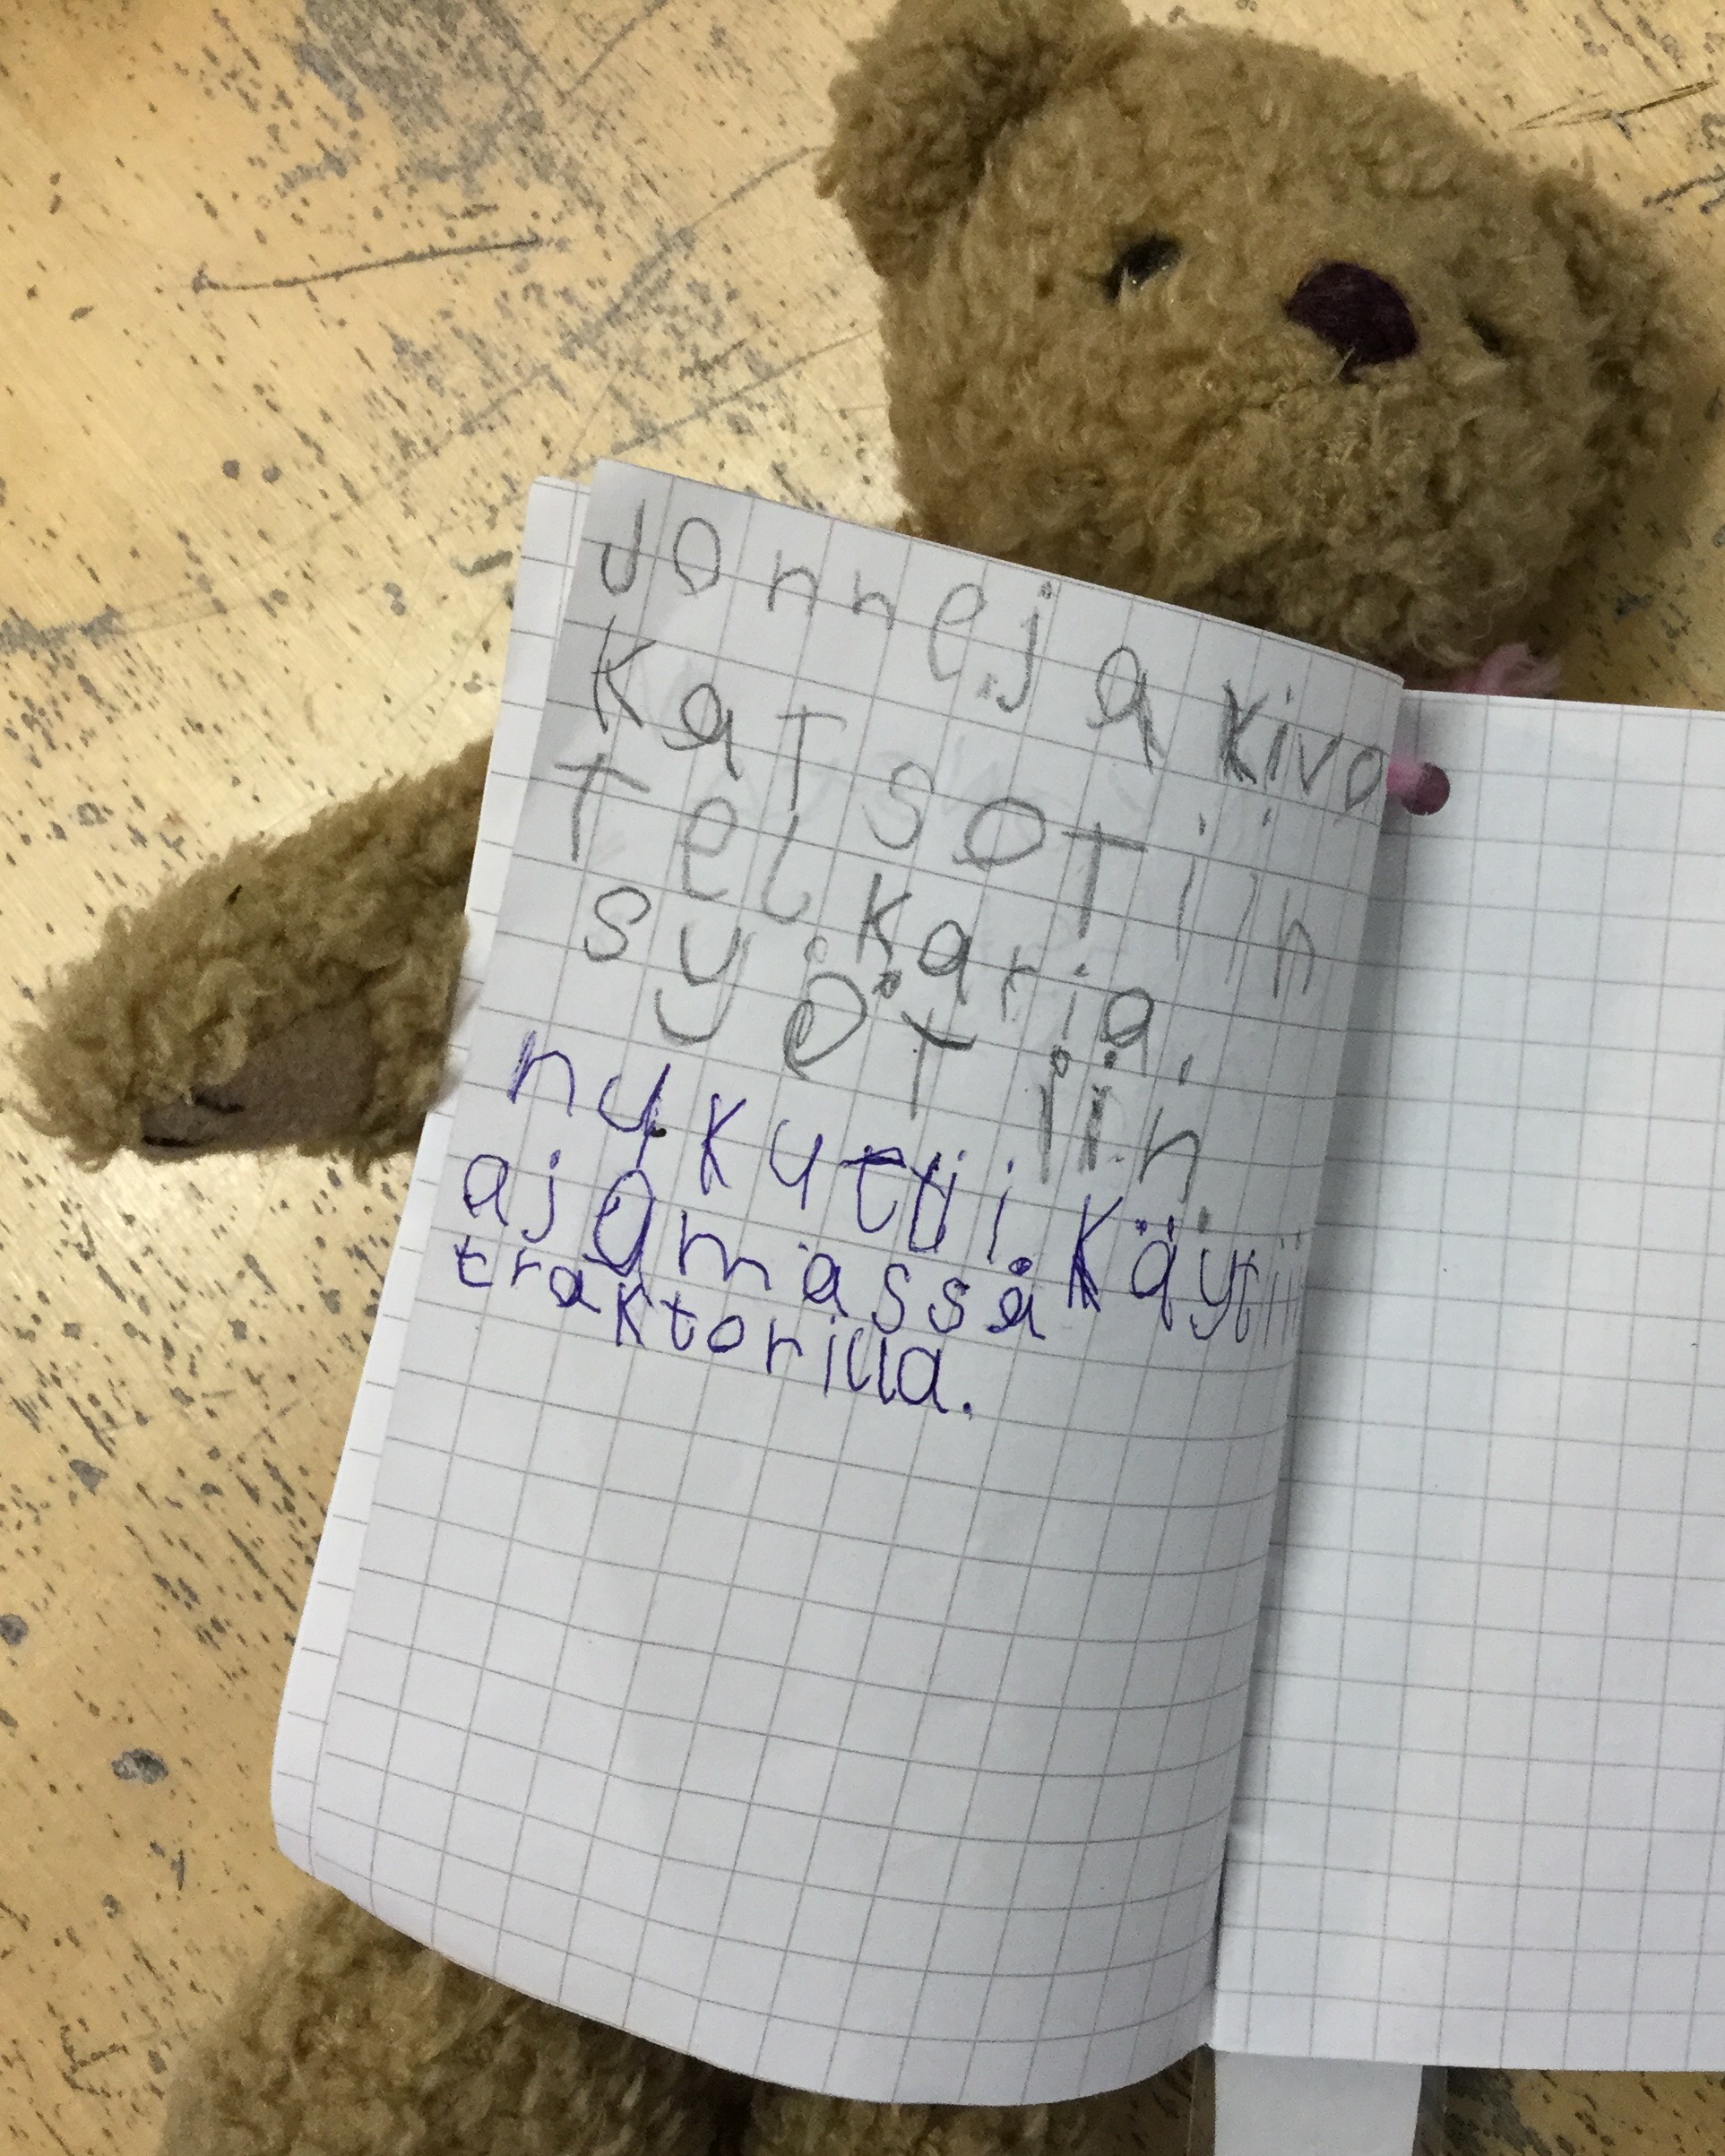 Jonne ja Kivo
Katsotiin
Telkaria.
Syötiin
nykyttii. Käytii
ajamassa
traktorilla.